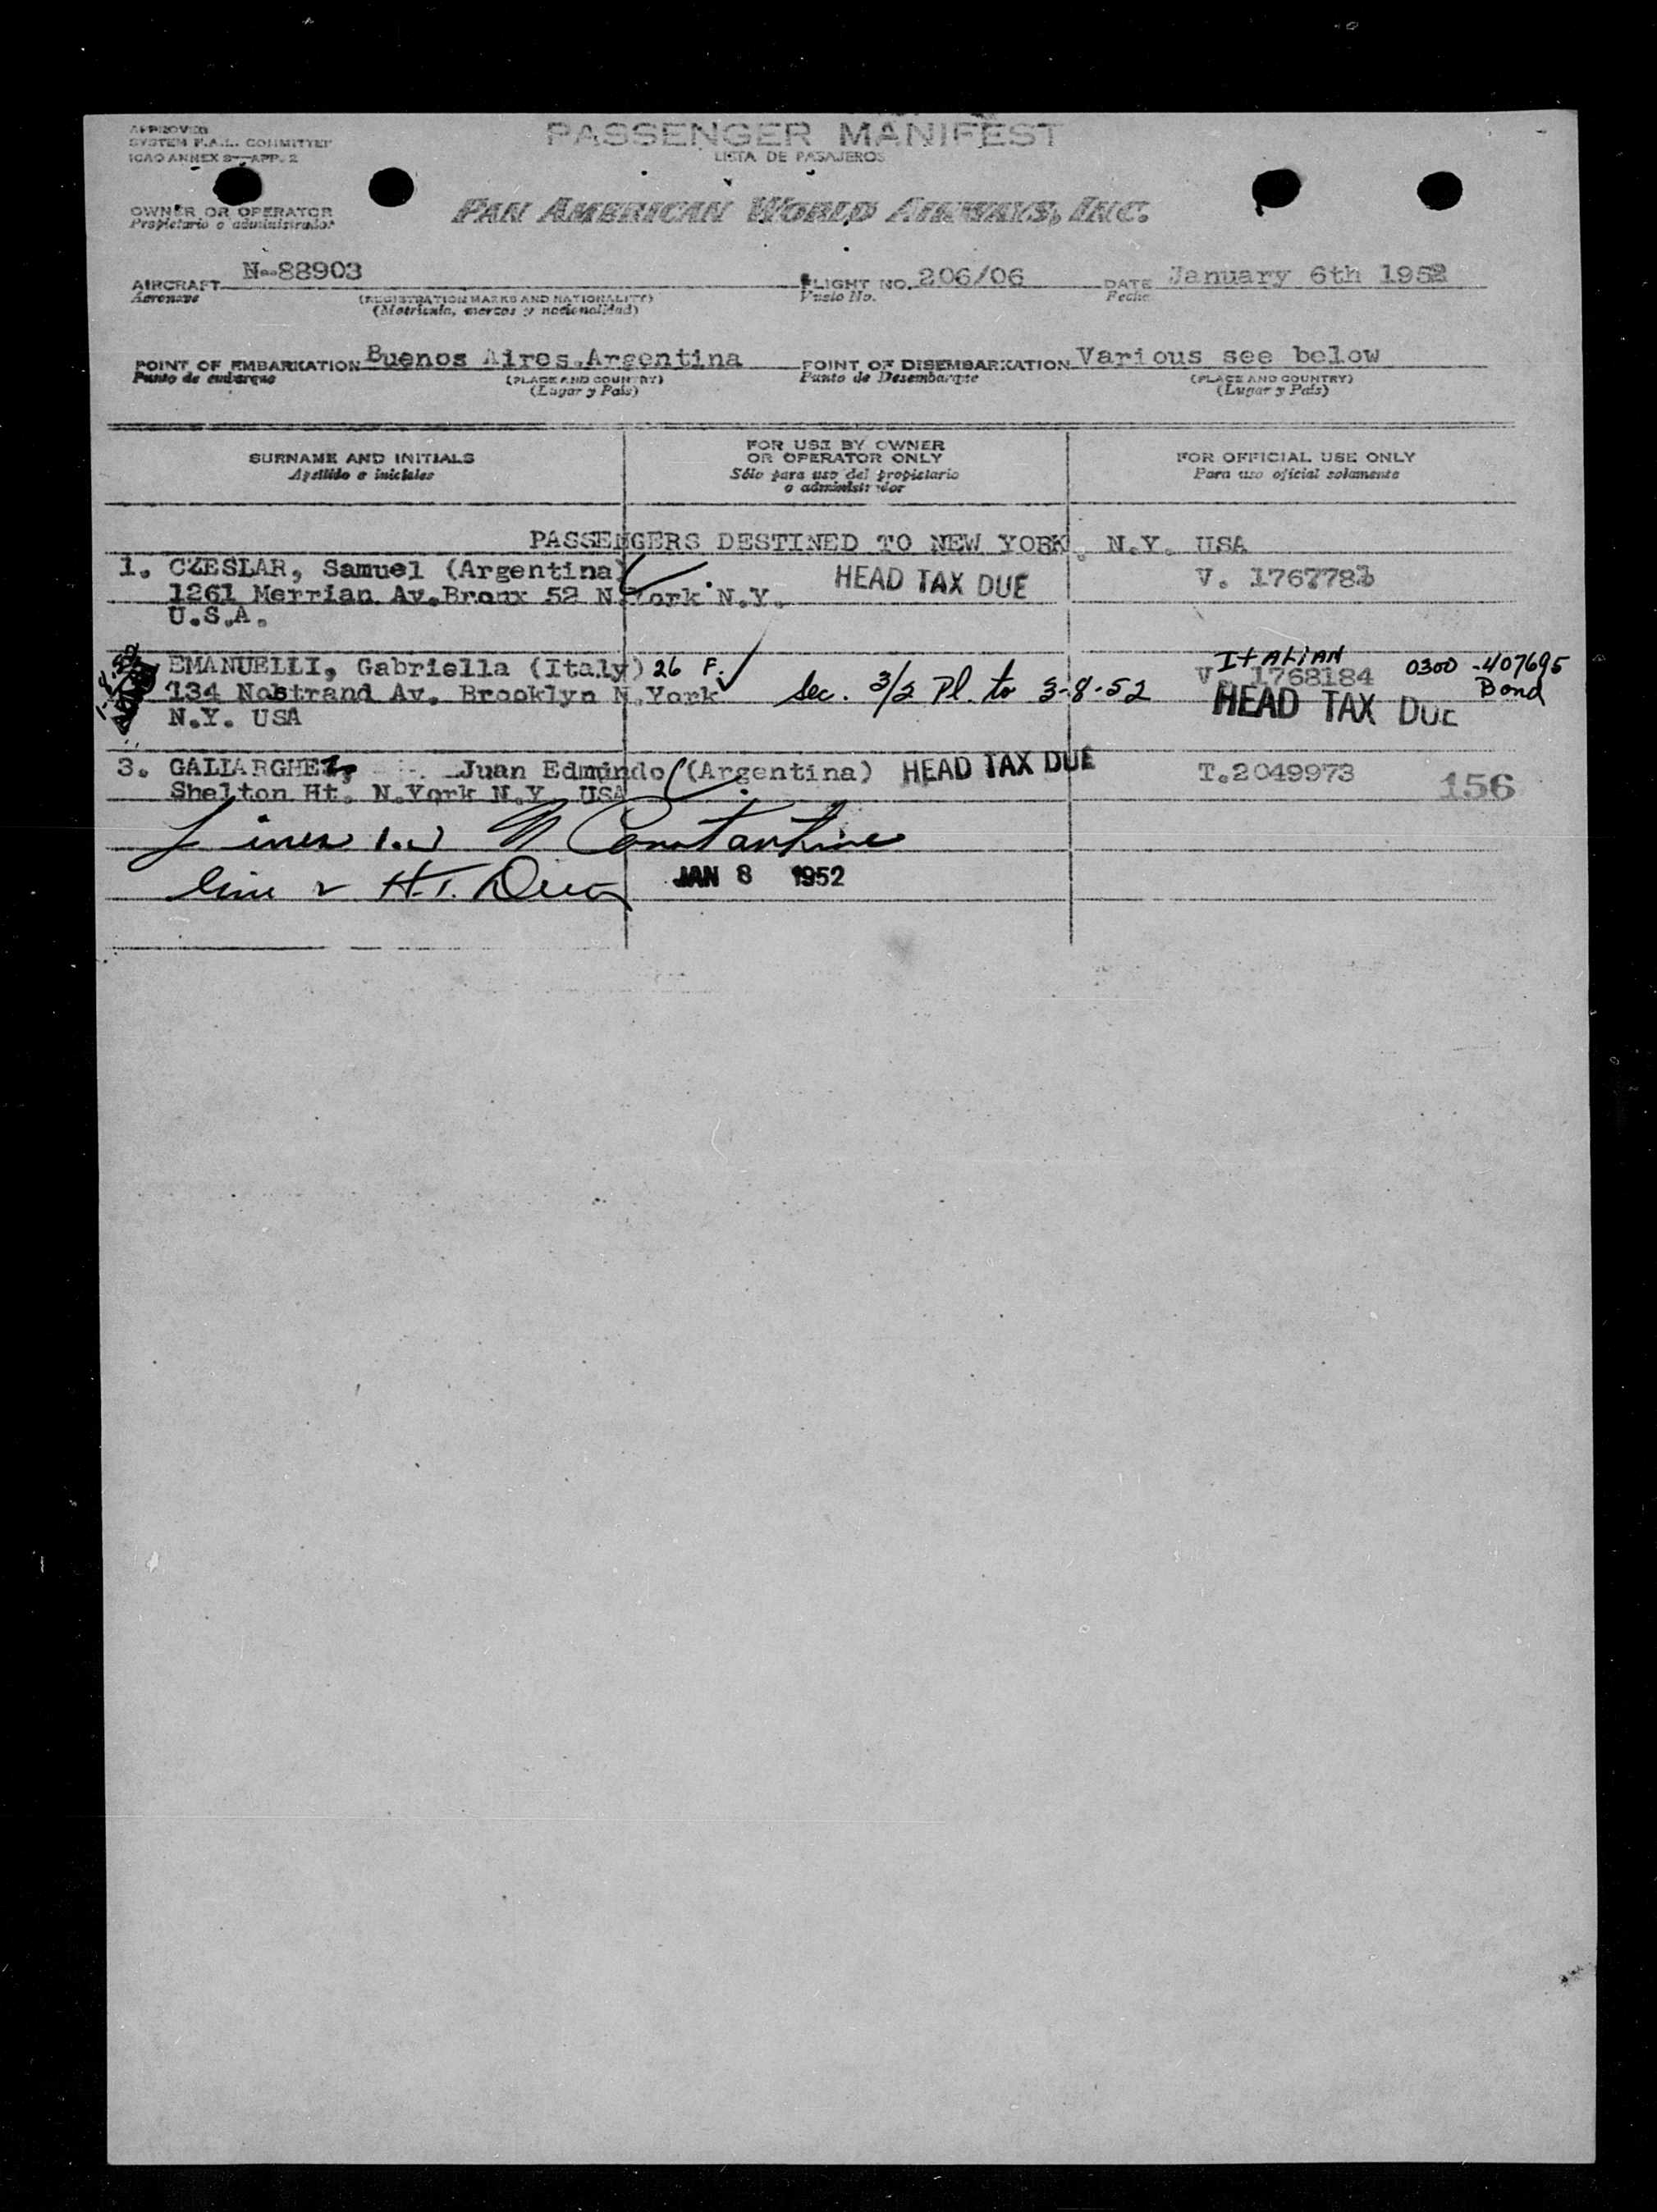 APPROVED
SYSTEM F.A.L. COMMITTEE
ICAO ANNEX 9—APP. 2
PASSENGER MANIFEST
LISTA DE PASAJEROS
OWNER OR OPERATOR
Propietario o administrador
PAN AMERICAN WORLD AIRWAYS, INC.
AIRCRAFT N-88903 FLIGHT NO. 206/06 DATE January 6th 1952
Aeronave (REGISTRATION MARKS AND NATIONALITY) Vuelo No. Fecha
(Matricula, marcas y nacionalidad)
POINT OF EMBARKATION Buenos Aires.Argentina POINT OF DISEMBARKATION Various see below
Punto de embarque (PLACE AND COUNTRY) Punto de Desembarque (PLACE AND COUNTRY)
(Lugar y Pais) (Lugar y Pais)
SURNAME AND INITIALS FOR USE BY OWNER OR OPERATOR ONLY FOR OFFICIAL USE ONLY
Apellido e iniciales Sólo para uso del propietario o administrador Para uso oficial solamente
PASSENGERS DESTINED TO NEW YORK. N.Y. USA
1. CZESLAR, Samuel (Argentina) HEAD TAX DUE V. 176778
1261 Merrian Av.Bronx 52 N.York N.Y.
U.S.A.
EMANUELLI, Gabriella (Italy) 26 F. ITALIAN 0300 -407695
134 Nostrand Av. Brooklyn N.York Sec. 3/2 Pl. to 3-8-52 V. 1768184 Bond
N.Y. USA HEAD TAX DUE
3. GALIARGHEZ, Juan Edmundo (Argentina) HEAD TAX DUE T.2049973 156
Shelton Ht. N.York N.Y. USA
Lines 1.3 Constantine
line 2 H.T. JAN 8 1952